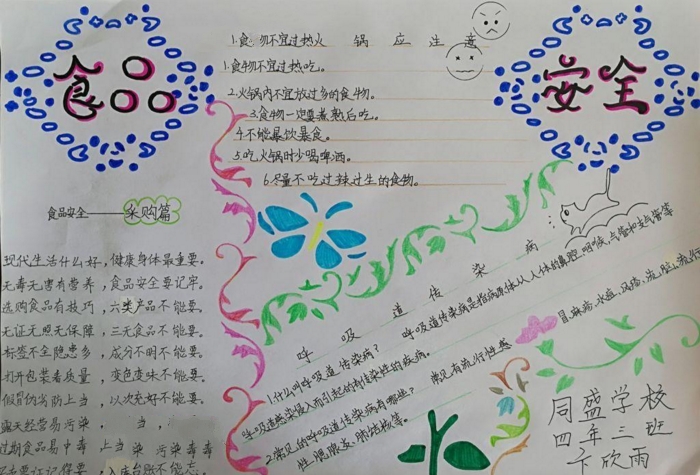 食品
安全
火锅应注意
1.食物不宜过热吃。
2.火锅内不宜放过多的食物。
3.食物一定要煮熟后吃。
4.不能暴饮暴食。
5.吃火锅时少喝啤酒。
6.尽量不吃过辣过生的食物。
食品安全——采购篇
现代生活什么好，健康身体最重要。
无毒无害有营养，食品安全要记牢。
选购食品有技巧，六类产品不能要。
无证无照无保障，三无食品不能要。
标签不全隐患多，成分不明不能要。
打开包装看质量，变色变味不能要。
假冒伪劣防上当，以次充好不能要。
露天经营易污染，
过期食品易中毒
呼吸道传染病
1.什么叫呼吸道传染病？ 呼吸道传染病是指病原体从人体的鼻腔、咽喉、气管和支气管等
呼吸道感染侵入而引起的有传染性的疾病。
2.常见的呼吸道传染病有哪些？ 常见有流行性感
冒、麻疹、水痘、风疹、流
性腮腺炎、肺结核等。
同盛学校
四年三班
卞欣雨